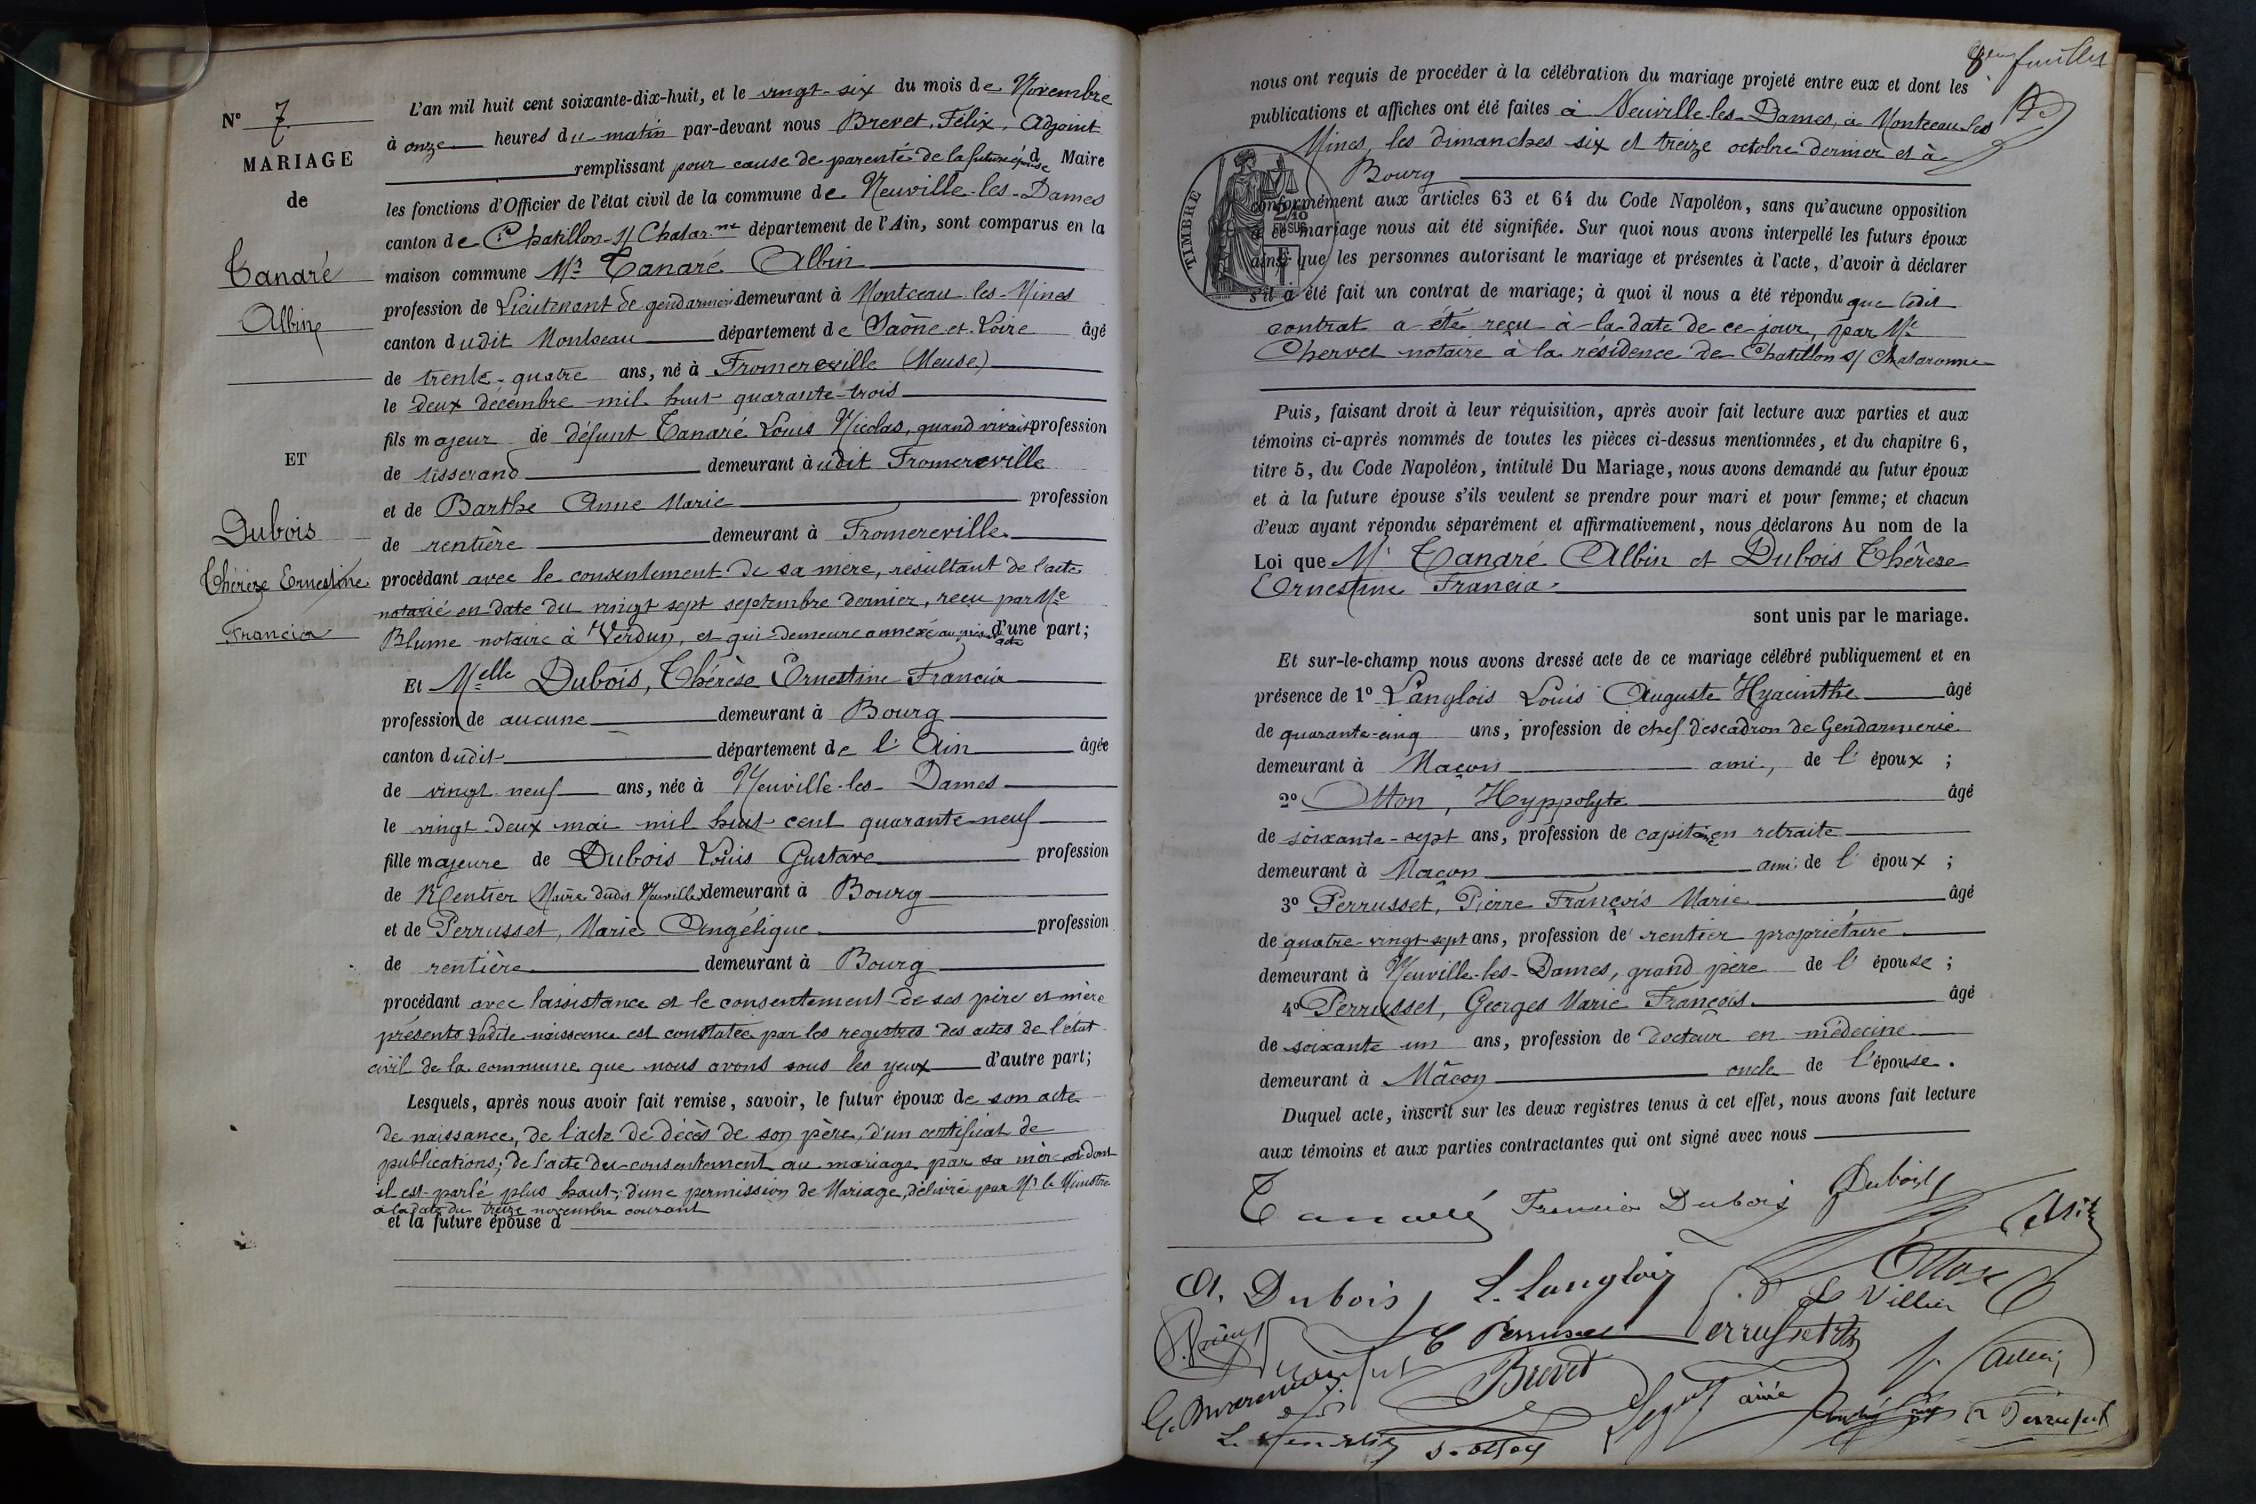 N° 7
MARIAGE
de
Canaré
Albin
ET
Dubois
Thérèse Ernestine
Francia
L'an mil huit cent soixante-dix-huit, et le vingt-six du mois de Novembre
à onze heures du matin par-devant nous Brevet, Félix, Adjoint
remplissant pour cause de parenté de la future épouse d Maire
les fonctions d'Officier de l'état civil de la commune de Neuville-les-Dames
canton de Chatillon-s/Chalar.ne département de l'Ain, sont comparus en la
maison commune Mr Canaré Albin
profession de Lieutenant de gendarmerie demeurant à Montceau-les-Mines
canton dudit Montceau département de Saône-et-Loire âgé
de trente-quatre ans, né à Fromereville (Meuse)
le deux décembre mil huit quarante-trois
fils majeur de défunt Canaré Louis Nicolas, quand vivait profession
de tisserand demeurant à udit Fromereville
et de Barthe Anne Marie profession
de rentière demeurant à Fromereville
procédant avec le consentement de sa mère, résultant de l'acte
notarié en date du vingt sept septembre dernier, reçu par Me
Blume notaire à Verdun, et qui demeure annexé au présent acte d'une part;
Et Melle Dubois, Thérèse Ernestine Francia
profession de aucune demeurant à Bourg
canton dudit département de l'Ain âgée
de vingt-neuf ans, née à Neuville-les-Dames
le vingt-deux mai mil huit cent quarante-neuf
fille majeure de Dubois Louis Gustave profession
de Rentier Maire dudit Neuville demeurant à Bourg
et de Perrusset, Marie Angélique profession
de rentière demeurant à Bourg
procédant avec l'assistance et le consentement de ses père et mère
présents Ladite naissance est constatée par les registres des actes de l'état
civil de la commune que nous avons sous les yeux d'autre part;
Lesquels, après nous avoir fait remise, savoir, le futur époux de son acte
de naissance, de l'acte de décès de son père, d'un certificat de
publications; de l'acte du consentement au mariage par sa mère dont
il est parlé plus haut; d'une permission de Mariage, délivré par Mr le Ministre
à la date du treize novembre courant
et la future épouse d
8eme feuillet
nous ont requis de procéder à la célébration du mariage projeté entre eux et dont les
publications et affiches ont été faites à Neuville-les-Dames, à Montceau-les
Mines, les dimanches six et treize octobre dernier et à
Bourg
TIMBRE
2/10
EN SUS
conformément aux articles 63 et 64 du Code Napoléon, sans qu'aucune opposition
à ce mariage nous ait été signifiée. Sur quoi nous avons interpellé les futurs époux
ainsi que les personnes autorisant le mariage et présentes à l'acte, d'avoir à déclarer
s'il a été fait un contrat de mariage; à quoi il nous a été répondu que ledit
contrat a été reçu à la date de ce jour, par Me
Chervet notaire à la résidence de Chatillon s/ Chalaronne
Puis, faisant droit à leur réquisition, après avoir fait lecture aux parties et aux
témoins ci-après nommés de toutes les pièces ci-dessus mentionnées, et du chapitre 6,
titre 5, du Code Napoléon, intitulé Du Mariage, nous avons demandé au futur époux
et à la future épouse s'ils veulent se prendre pour mari et pour femme; et chacun
d'eux ayant répondu séparément et affirmativement, nous déclarons Au nom de la
Loi que Mr Canaré Albin et Dubois Thérèse
Ernestine Francia
sont unis par le mariage.
Et sur-le-champ nous avons dressé acte de ce mariage célébré publiquement et en
présence de 1° Langlois Louis Auguste Hyacinthe âgé
de quarante-cinq ans, profession de chef d'escadron de Gendarmerie
demeurant à Maçon ami, de l'époux ;
2° Otton, Hyppolyte âgé
de soixante-sept ans, profession de capitaine en retraite
demeurant à Macon ami de l'époux ;
3° Perrusset, Pierre François Marie âgé
de quatre-vingt-sept ans, profession de rentier propriétaire
demeurant à Neuville-les-Dames, grand père de l'épouse ;
4° Perrusset, Georges Marie François âgé
de soixante un ans, profession de docteur en médecine
demeurant à Mâcon oncle de l'épouse.
Duquel acte, inscrit sur les deux registres tenus à cet effet, nous avons fait lecture
aux témoins et aux parties contractantes qui ont signé avec nous
Canaré Francia Dubois Dubois
Otton
A. Dubois L. Langlois Villier
E Perrusset Perrusset
Brevet
ainé Perrusset